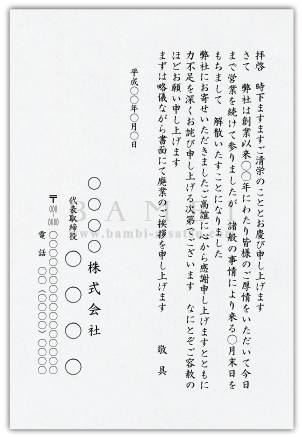 拝啓 時下ますますご清栄のこととお慶び申し上げます
さて 弊社は創業以来〇〇年にわたり皆様のご厚情をいただいて今日
まで営業を続けて参りましたが 諸般の事情により来る〇月末日を
もちまして 解散いたすことになりました
弊社にお寄せいただきましたご高誼に心から感謝申し上げますとともに
力不足を深くお詫び申し上げる次第でございます なにとぞご容赦の
ほどお願い申し上げます
まずは略儀ながら書面にて廃業のご挨拶を申し上げます
敬具
平成〇〇年〇月〇日
〇〇〇〇株式会社
代表取締役 〇〇〇〇
〒〇〇〇-〇〇〇〇 〇〇〇〇〇〇〇〇〇〇〇〇〇
電話 〇〇(〇〇〇)〇〇〇〇
BAMBI